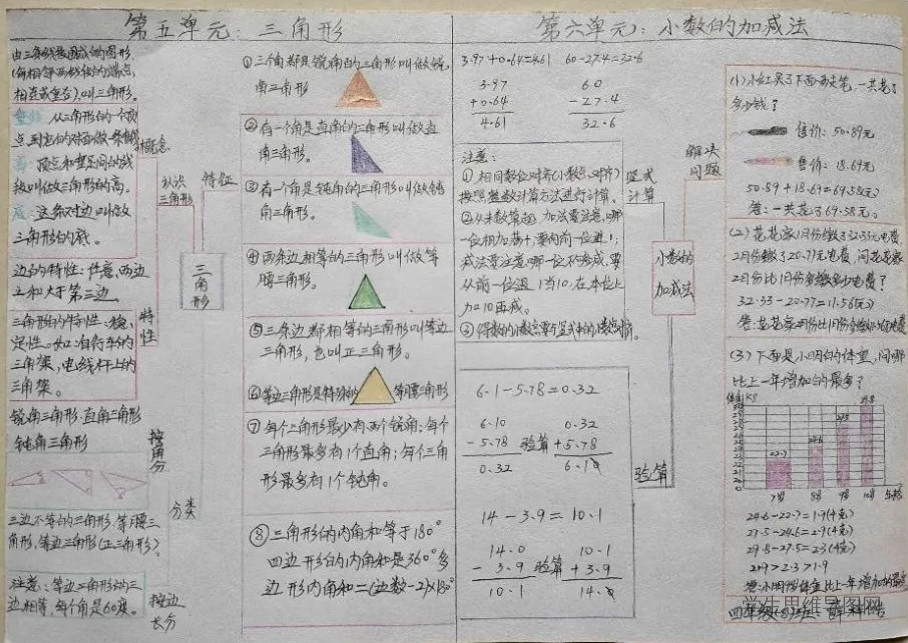 第五单元：三角形
由三条线段围成的图形
(每相邻两条线段的端点
相连或重合),叫三角形。
从三角形的一个顶
点到它的对边做一条垂线
顶点和垂足间的线
段叫做三角形的高。
底：这条对边叫做
三角形的底。
概念
认识
三角形
特征
边的特性：任意两边
之和大于第三边
三角形的特性：稳
定性。如：自行车的
三角架，电线杆上的
三角架。
特性
三角形
锐角三角形 直角三角形
钝角三角形
按角分
分类
三边不等的三角形，等腰三
角形，等边三角形(正三角形)。
注意：等边三角形的三
边相等，每个角是60度。
按边
长分
①三个角都是锐角的三角形叫做锐
角三角形
②有一个角是直角的三角形叫做直
角三角形。
③有一个角是钝角的三角形叫做钝
角三角形。
④两条边相等的三角形叫做等
腰三角形。
⑤三条边都相等的三角形叫等边
三角形，也叫正三角形。
⑥等边三角形是特殊的等腰三角形
⑦每个三角形最少有两个锐角；每个
三角形最多有1个直角；每个三角
形最多有1个钝角。
⑧三角形的内角和等于180°
四边形的内角和是360°多
边形内角和=(边数-2)×180°
第六单元：小数的加减法
3.97+0.64=4.61 60-27.4=32.6
3.97
+0.64
4.61
60
-27.4
32.6
注意：
①相同数位对齐(小数点对齐)
按照整数计算方法进行计算。
②从末数算起，加法要注意，哪
一位相加满十，要向前一位进1；
减法要注意，哪一位不够减，要
从前一位退1当10，在本位上
加10再减。
竖式
计算
解决
问题
小数的
加减法
6.1-5.78=0.32
6.10
-5.78
0.32
验算
0.32
+5.78
6.10
14-3.9=10.1
14.0
-3.9
10.1
验算
10.1
+3.9
14.0
验算
(1)小红买了下面两支笔,一共花了
多少钱？
售价：50.89元
售价：18.69元
50.89+18.69=69.58(元)
答：一共花了69.58元。
2月份比1月份多缴多少电费？
32.33-20.77=11.56(元)
(3)下面是小明的体重，问哪
比上一年增加的最多？
22.7
24.6
27.5
29.8
7岁 8岁 9岁 10岁
24.6-22.7=1.9(千克)
27.5-24.6=2.9(千克)
29.8-27.5=2.3(千克)
2.9>2.3>1.9